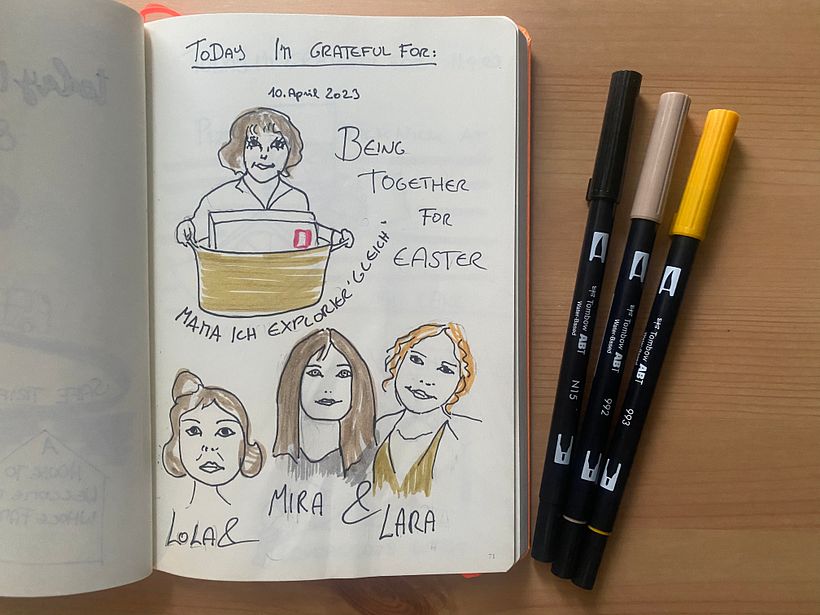 TODAY I'm GRATEFUL FOR:
10. April 2023
BEING
TOGETHER
FOR
EASTER
MAMA ICH EXPLORIER' GLEICH"
LOLA &
MIRA &
LARA
71
Tombow ABT
Water-Based
N15
Tombow ABT
Water-Based
992
Tombow ABT
Water-Based
993
CAFE TRIP
A
HOUSE TO
WELCOME
WHOLE FAM